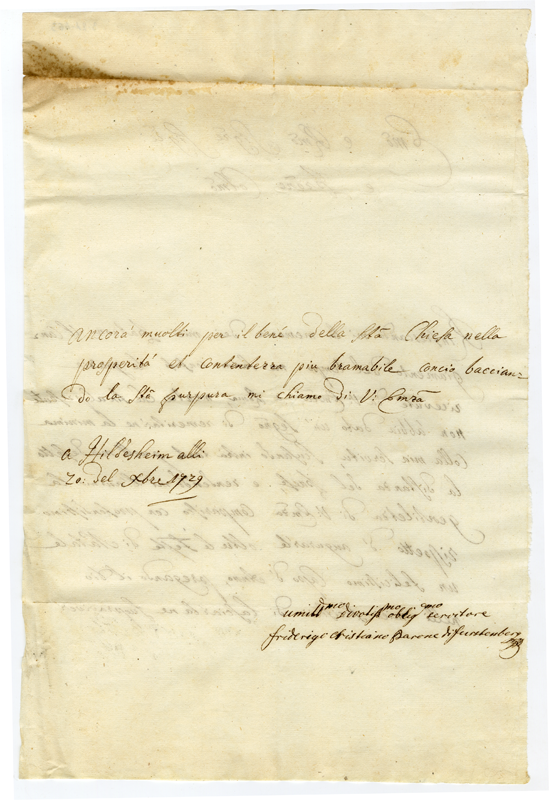 ancora muolti per il bené della Stã Chiesa nella
prosperitá et contentezza piu bramabile concio baccian=
do la Stã purpura mi chiamo di V: Emzã
a Hildesheim alli
20: del Xbre 1729
umillmo divotissmo obligmo servitore
frederigo Christiano Barone di furstenberg